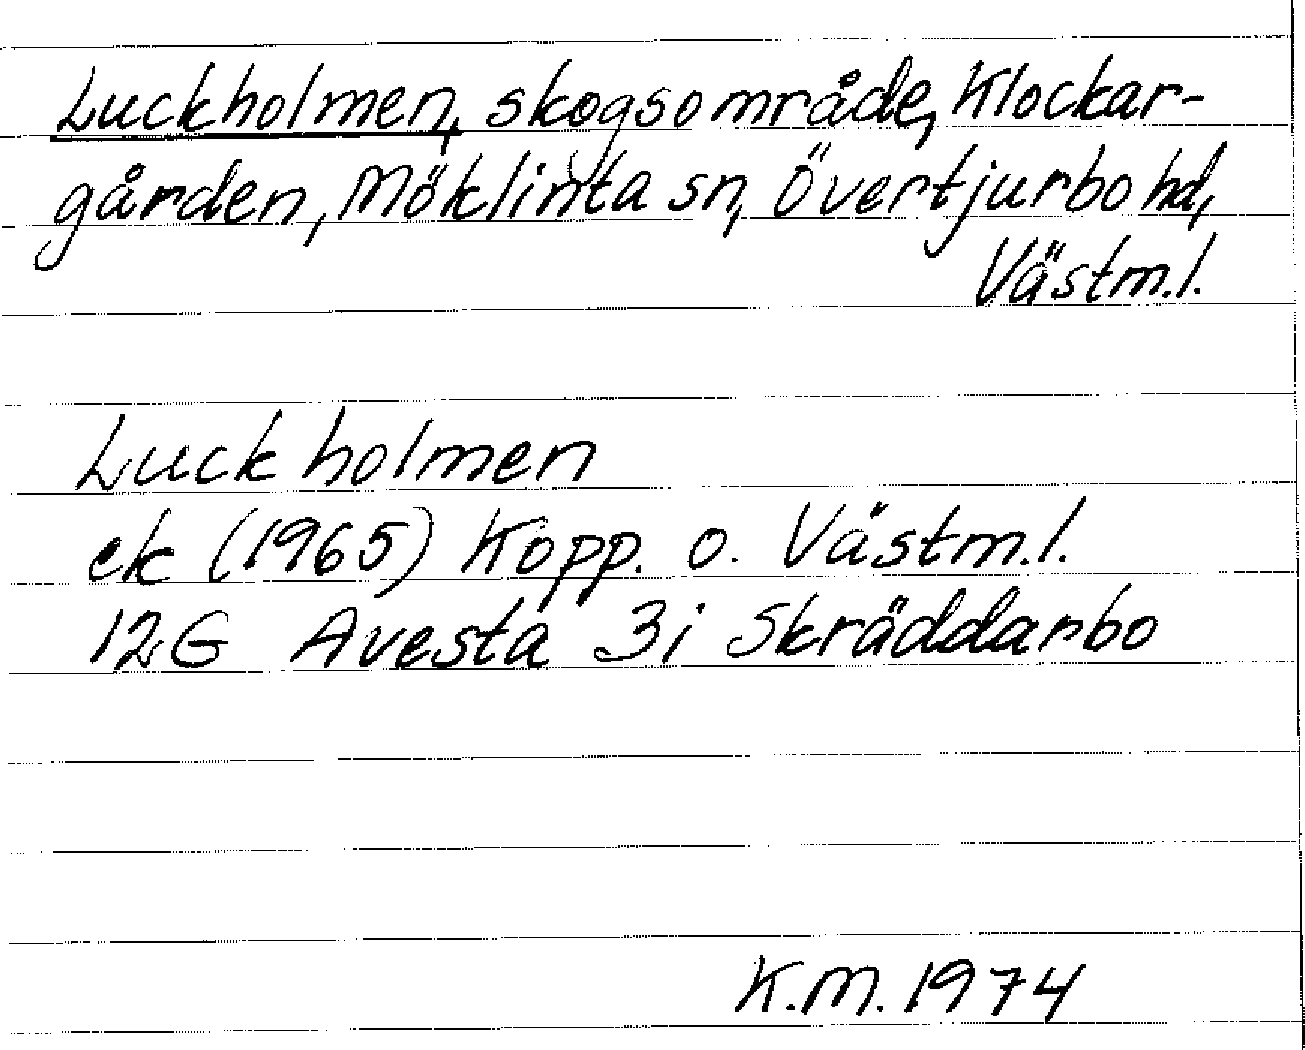 Luckholmen, skogsområde, Klockar-
gården, Möklinta sn, Övertjurbo hd,
Västm.l.
Luckholmen
ek (1965) Kopp. o. Västm.l.
12G Avesta 3i Skräddarbo
K.M. 1974